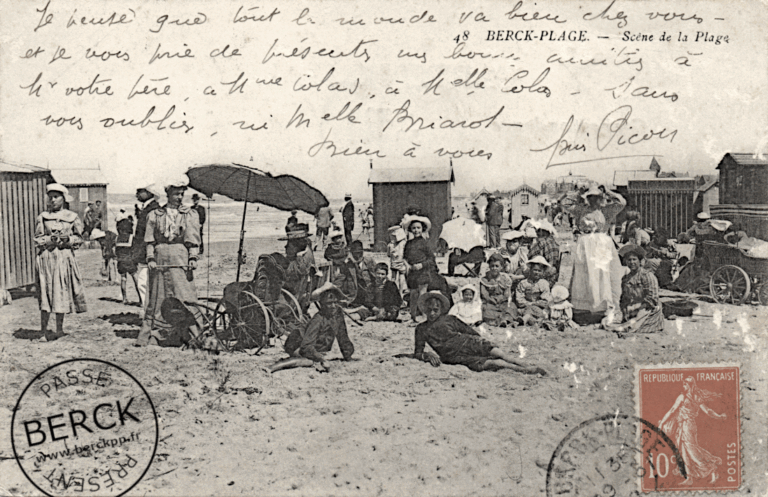 Je pense que tout le monde va bien chez vous -
48 BERCK-PLAGE. — Scène de la Plage
et je vous prie de présenter mes bonnes amitiés à
Mr votre père, à Mme Colas, à Melle Colas - Sans
vous oublier, ni Melle Briarot -
Bien à vous
Picou
PASSÉ
BERCK
www.berckpp.fr
PRÉSENT
REPUBLIQUE FRANÇAISE
10c
POSTES